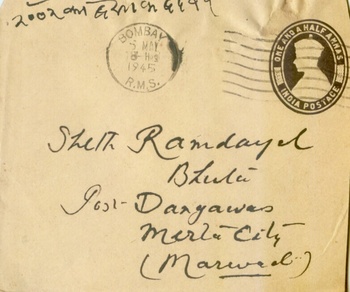 BOMBAY
5 MAY
1945
R.M.S.
ONE AND A HALF ANNAS
INDIA POSTAGE
Sheth Ramdayal
Post- Dangawas
Merta City
(Marwad)